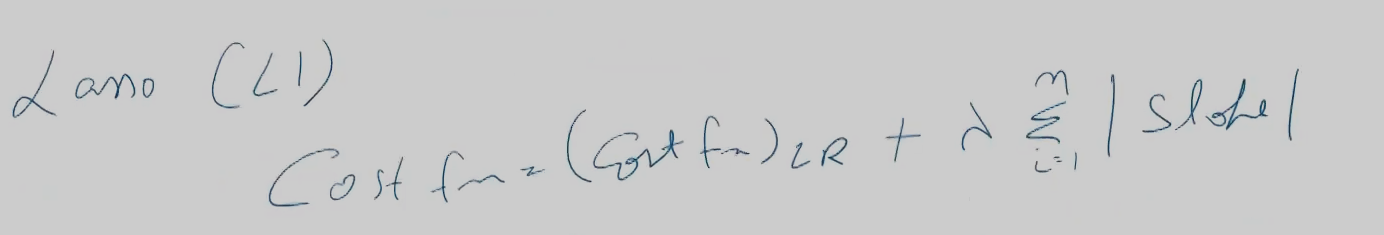 Lasso (L1)
Cost fn = (Cost fn)LR + λ n Σ i=1 |Slope|